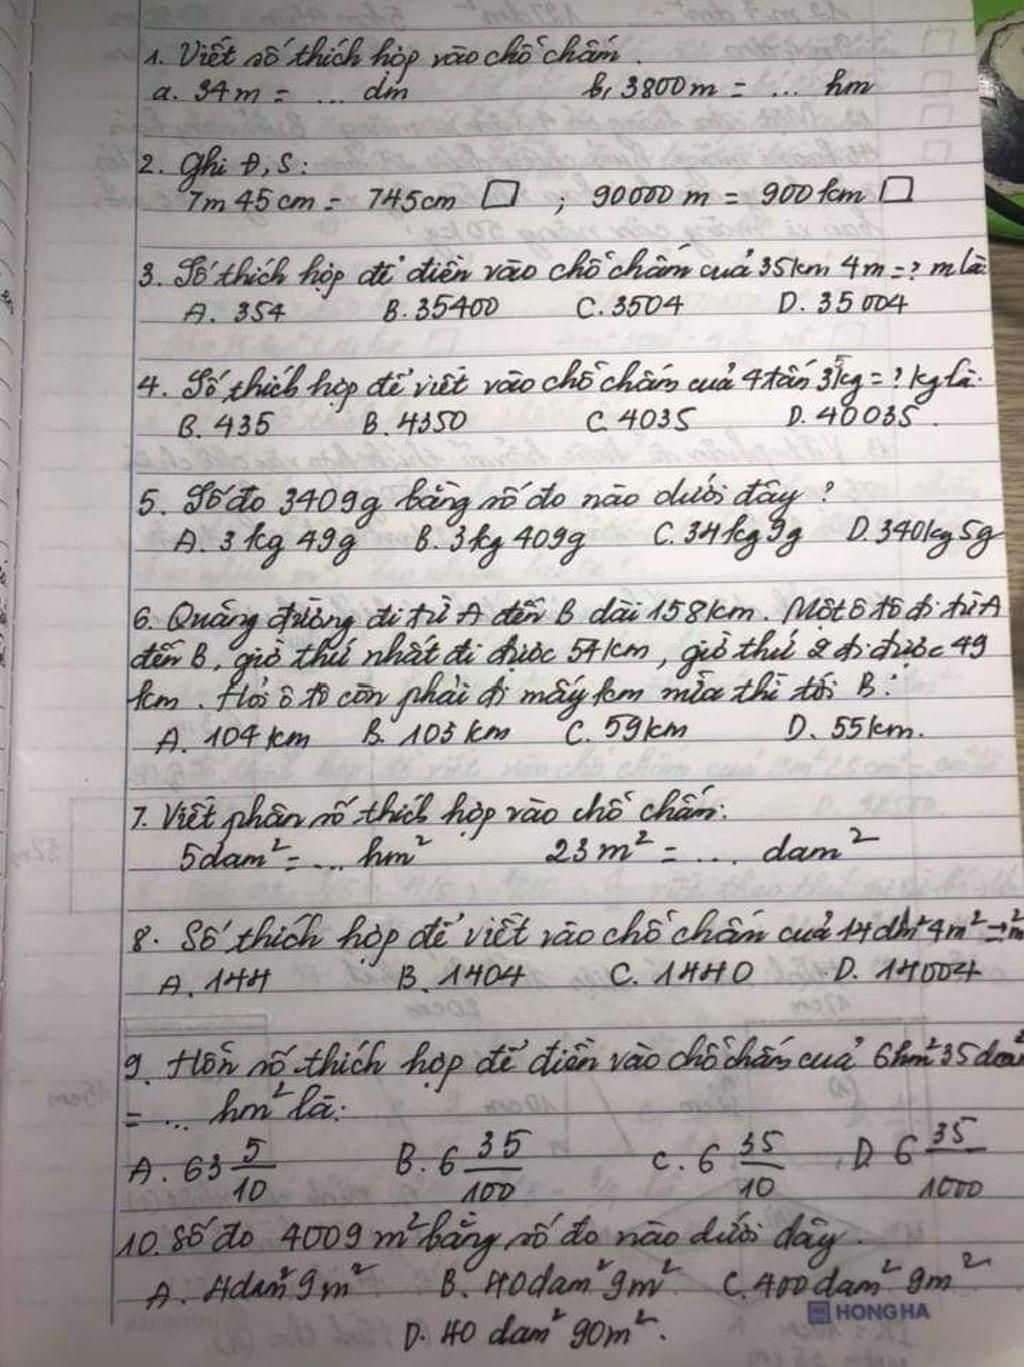 1. Viết số thích hợp vào chỗ chấm.
a. 34m = ... dm b, 3800m = ... hm
2. Ghi Đ, S:
7m 45cm = 745cm □ ; 90000 m = 900km □
3. Số thích hợp để điền vào chỗ chấm của 35km 4m = ? m là:
A. 354 B. 35400 C. 3504 D. 35004
4. Số thích hợp để viết vào chỗ chấm của 4 tấn 35kg = ? kg là:
B. 435 B. 4350 C. 4035 D. 40035.
5. Số đo 3409g bằng số đo nào dưới đây ?
A. 3kg 49g B. 3kg 409g C. 34kg 9g D. 340kg 5g
6. Quãng đường đi từ A đến B dài 158km. Một ô tô đi từ A
đến B, giờ thứ nhất đi được 54km, giờ thứ 2 đi được 49
km. Hỏi ô tô còn phải đi mấy km nữa thì tới B:
A. 104km B. 103km C. 59km D. 55km.
7. Viết phân số thích hợp vào chỗ chấm:
5dam² = ... hm² 23m² = ... dam²
8. Số thích hợp để viết vào chỗ chấm của 14dm² 4m² = m²
A. 144 B. 1404 C. 1440 D. 14004
9. Hỗn số thích hợp để điền vào chỗ chấm của 6hm² 35dam²
= ... hm² là:
A. 63 5/10 B. 6 35/100 C. 6 35/10 D 6 35/1000
10. Số đo 4009m² bằng số đo nào dưới dây.
A. 4dam² 9m² B. 40dam² 9m² C. 400dam² 9m²
HONG HA
D. 40 dam² 90m².